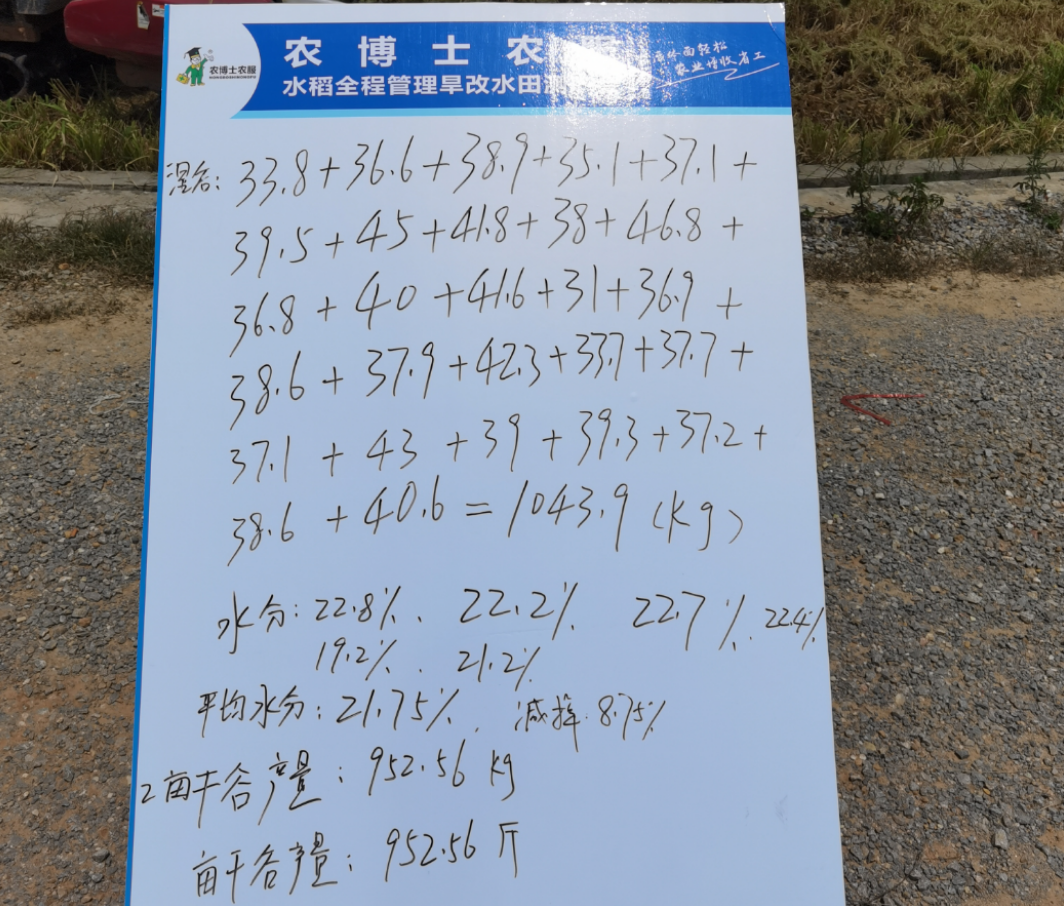 农博士农服
农博士农服
水稻全程管理旱改水田测
轻松
农业增收省工
湿谷: 33.8+36.6+38.9+35.1+37.1+
39.5+45+41.8+38+46.8+
36.8+40+41.6+31+36.9+
38.6+37.9+42.3+33.7+37.7+
37.1+43+39+39.3+37.2+
38.6+40.6=1043.9(kg)
水分:22.8%、22.2% 22.7%、22.4%
19.2%、21.2%
平均水分:21.75%、减掉8.75%
2亩干谷产量:952.56kg
亩干谷产量:952.56斤